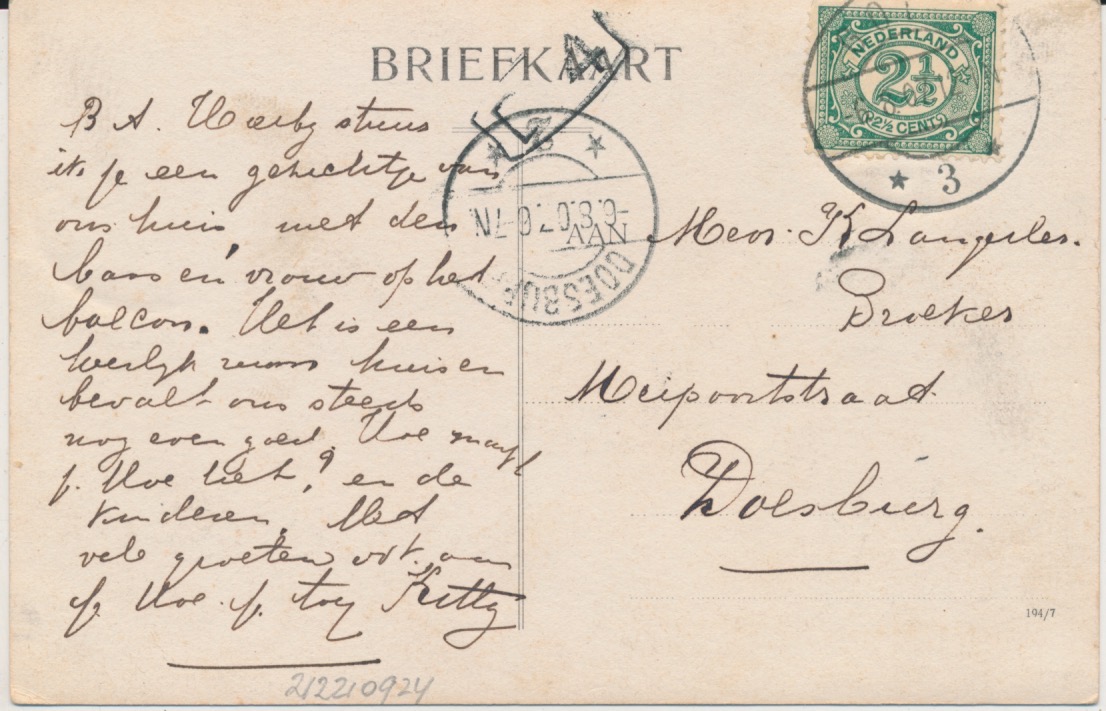 BRIEFKAART
B A. Hierby stuur
ik je een gezichtje van
ons huis, met den
baas en vrouw op het
balcon. Het is een
heerlyk ruim huis en
bevalt ons steeds
nog even goed. Hoe maakt
j. Moe het? en de
kinderen. Met
vele groeten ook aan
je Moe. j.
Kitty
NEDERLAND
2½
(2½ CENT)
3
4
AAN
DOESBURG
Mevr. K Langeler.
Broekes
Meipoortstraat
Doesburg.
194/7
212210924